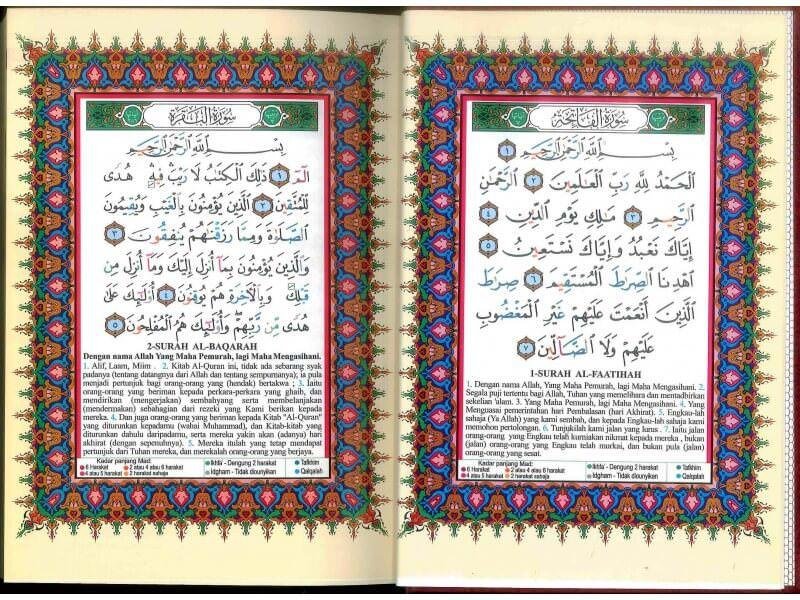 سورة الفاتحة
بِسْمِ ٱللَّهِ ٱلرَّحْمَٰنِ ٱلرَّحِيمِ ١
ٱلْحَمْدُ لِلَّهِ رَبِّ ٱلْعَٰلَمِينَ ٢ ٱلرَّحْمَٰنِ
ٱلرَّحِيمِ ٣ مَٰلِكِ يَوْمِ ٱلدِّينِ ٤
إِيَّاكَ نَعْبُدُ وَإِيَّاكَ نَسْتَعِينُ ٥
ٱهْدِنَا ٱلصِّرَٰطَ ٱلْمُسْتَقِيمَ ٦ صِرَٰطَ
ٱلَّذِينَ أَنْعَمْتَ عَلَيْهِمْ غَيْرِ ٱلْمَغْضُوبِ
عَلَيْهِمْ وَلَا ٱلضَّآلِّينَ ٧
1-SURAH AL-FAATIHAH
1. Dengan nama Allah, Yang Maha Pemurah, lagi Maha Mengasihani. 2.
Segala puji tertentu bagi Allah, Tuhan yang memelihara dan mentadbirkan
sekelian 'alam. 3. Yang Maha Pemurah, lagi Maha Mengasihani. 4. Yang
Menguasai pemerintahan hari Pembalasan (hari Akhirat). 5. Engkau-lah
sahaja (Ya Allah) yang kami sembah, dan kepada Engkau-lah sahaja kami
memohon pertolongan. 6. Tunjukilah kami jalan yang lurus . 7. Iaitu jalan
orang-orang yang Engkau telah kurniakan nikmat kepada mereka , bukan
(jalan) orang-orang yang Engkau telah murkai, dan bukan pula (jalan)
orang-orang yang sesat.
Kadar panjang Mad:
6 Harakat 2 atau 4 atau 6 harakat
4 atau 5 harakat 2 harakat sahaja
Ikhfa' - Dengung 2 harakat
Idgham - Tidak dibunyikan
Tafkhim
Qalqalah
سورة البقرة
بِسْمِ ٱللَّهِ ٱلرَّحْمَٰنِ ٱلرَّحِيمِ
الٓمٓ ١ ذَٰلِكَ ٱلْكِتَٰبُ لَا رَيْبَ ۛ فِيهِ ۛ هُدًى
لِّلْمُتَّقِينَ ٢ ٱلَّذِينَ يُؤْمِنُونَ بِٱلْغَيْبِ وَيُقِيمُونَ
ٱلصَّلَوٰةَ وَمِمَّا رَزَقْنَٰهُمْ يُنفِقُونَ ٣
وَٱلَّذِينَ يُؤْمِنُونَ بِمَآ أُنزِلَ إِلَيْكَ وَمَآ أُنزِلَ مِن
قَبْلِكَ وَبِٱلْءَاخِرَةِ هُمْ يُوقِنُونَ ٤ أُو۟لَٰٓئِكَ عَلَىٰ
هُدًى مِّن رَّبِّهِمْ ۖ وَأُو۟لَٰٓئِكَ هُمُ ٱلْمُفْلِحُونَ ٥
2-SURAH AL-BAQARAH
Dengan nama Allah Yang Maha Pemurah, lagi Maha Mengasihani.
1. Alif, Laam, Miim . 2. Kitab Al-Quran ini, tidak ada sebarang syak
padanya (tentang datangnya dari Allah dan tentang sempurnanya); ia pula
menjadi petunjuk bagi orang-orang yang (hendak) bertakwa ; 3. Iaitu
orang-orang yang beriman kepada perkara-perkara yang ghaib, dan
mendirikan (mengerjakan) sembahyang serta membelanjakan
(mendermakan) sebahagian dari rezeki yang Kami berikan kepada
mereka. 4. Dan juga orang-orang yang beriman kepada Kitab "Al-Quran"
yang diturunkan kepadamu (wahai Muhammad), dan Kitab-kitab yang
diturunkan dahulu daripadamu, serta mereka yakin akan (adanya) hari
akhirat (dengan sepenuhnya). 5. Mereka itulah yang tetap mendapat
petunjuk dari Tuhan mereka, dan merekalah orang-orang yang berjaya.
Kadar panjang Mad:
6 Harakat 2 atau 4 atau 6 harakat
4 atau 5 harakat 2 harakat sahaja
Ikhfa' - Dengung 2 harakat
Idgham - Tidak diounyikan
Tafkhim
Qalqalah